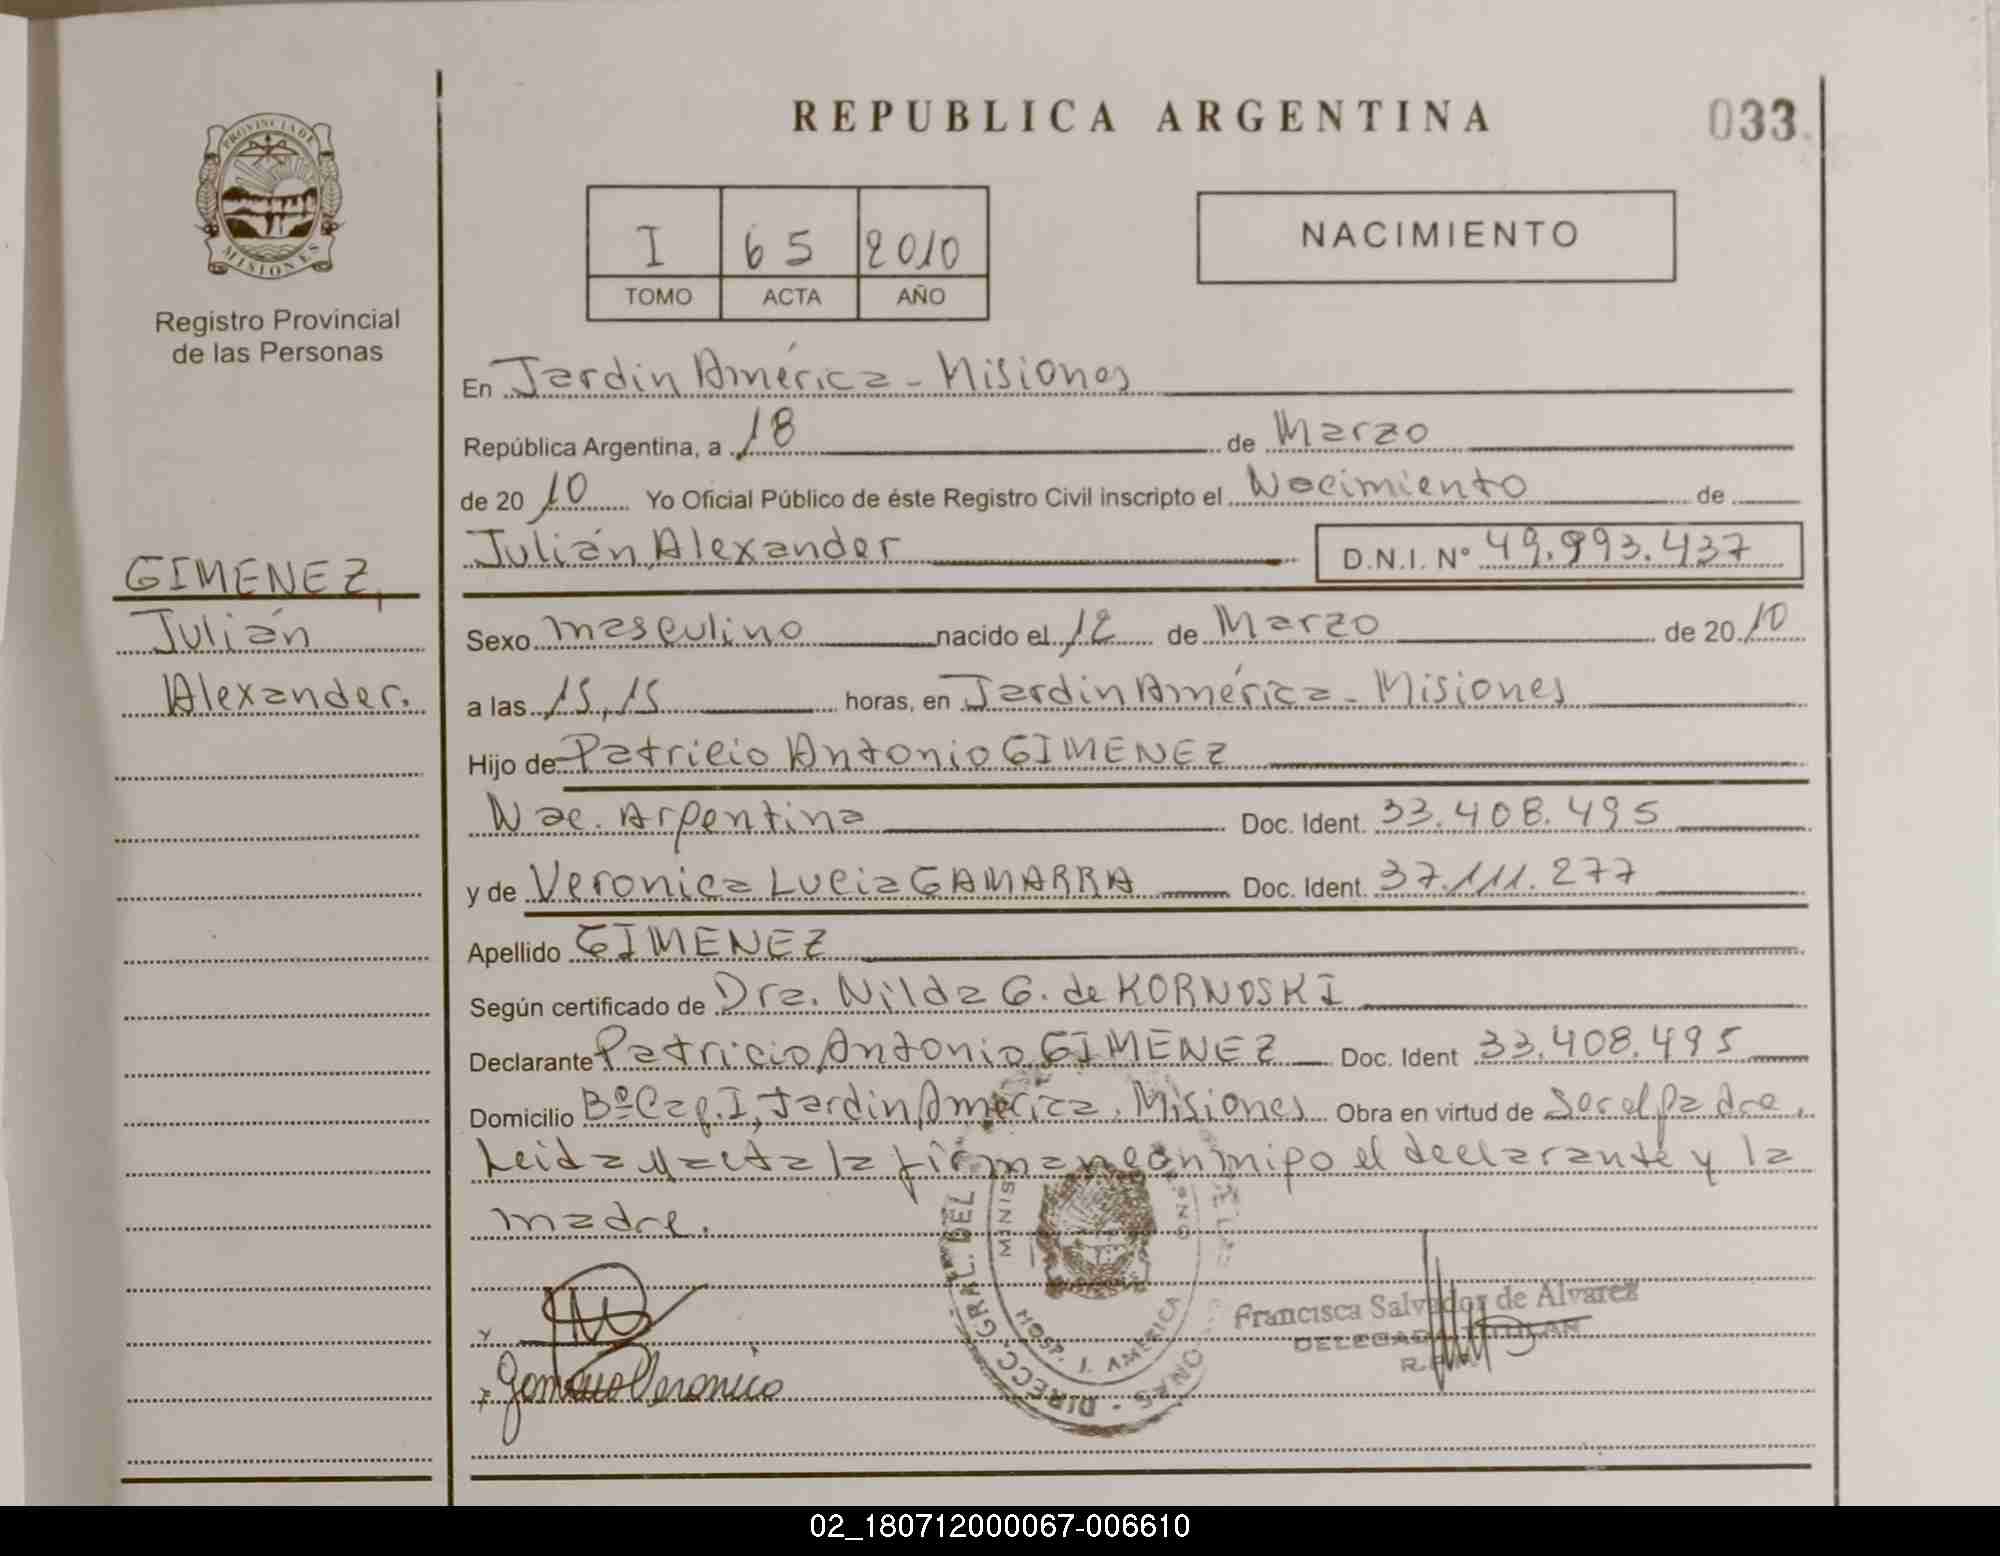 REPUBLICA ARGENTINA
033
PROVINCIA DE
MISIONES
Registro Provincial
de las Personas
I 65 2010
TOMO ACTA AÑO
NACIMIENTO
En Jardín América - Misiones
República Argentina, a 18 de Marzo
de 2010 Yo Oficial Público de éste Registro Civil inscripto el Nacimiento de
Julián Alexander D.N.I. Nº 49.993.437
GIMENEZ,
Julián
Alexander.
Sexo masculino nacido el 12 de Marzo de 2010
a las 15,15 horas, en Jardín América - Misiones
Hijo de Patricio Antonio GIMENEZ
Nac. Argentina Doc. Ident. 33.408.495
y de Veronica Lucia GAMARRA Doc. Ident. 37.111.277
Apellido GIMENEZ
Según certificado de Dra. Nilda G. de KORNOSKI
Declarante Patricio Antonio GIMENEZ Doc. Ident 33.408.495
Domicilio Bº Cap. I, Jardín América. Misiones Obra en virtud de Ser el padre.
Leida y acta la firman conmigo el declarante y la
madre.
DIRECC. GRAL. DEL
HOSP. J. AMERICA
Francisca Salvador de Alvarez
DELEGADA TITULAR
Veronica
02_180712000067-006610